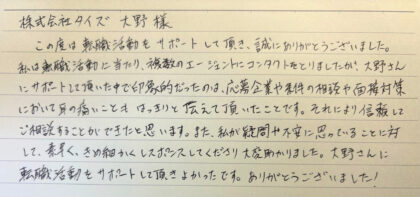 株式会社タイズ 大野 様
この度は転職活動をサポートして頂き、誠にありがとうございました。
私は転職活動に当たり、複数のエージェントにコンタクトをとりましたが、大野さん
にサポートして頂いた中で印象的だったのは、応募企業や案件の相談や面接対策
において耳の痛いことも はっきりと伝えて頂いたことです。それにより信頼して
ご相談することができたと思います。また、私が疑問や不安に思っていることに対
して、素早く、きめ細かくレスポンスしてくださり大変助かりました。大野さんに
転職活動をサポートして頂きよかったです。ありがとうございました!